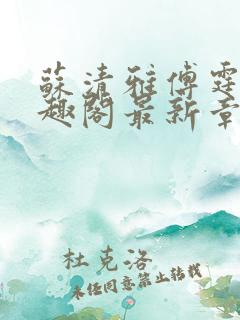 蘇清雅傅霆
趣閣最新章
杜克洛
未经同意禁止转载